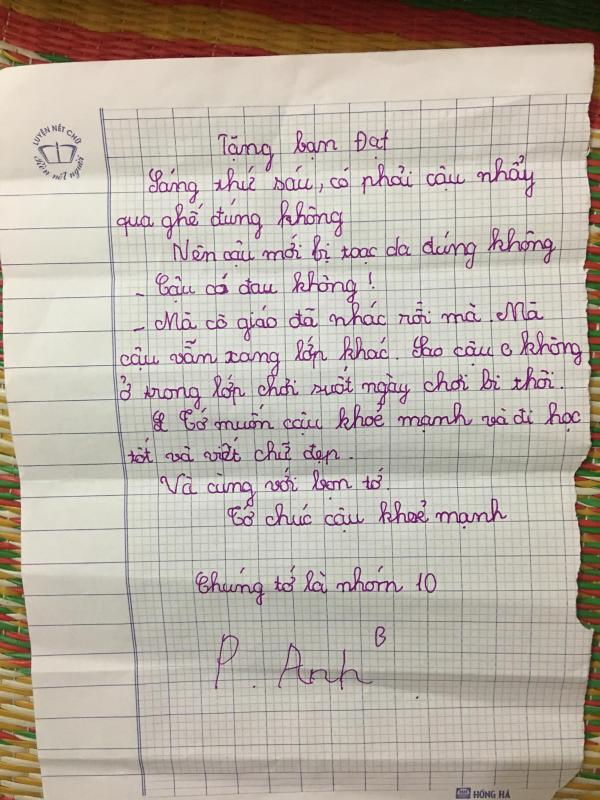 LUYỆN NÉT CHỮ
Rèn nết người
Tặng bạn Đạt
Sáng thứ sáu, có phải cậu nhẩy
qua ghế đúng không
Nên cậu mới bị toạc da đúng không
- Cậu có đau không!
- Mà cô giáo đã nhác rồi mà. Mà
cậu vẫn xang lớp khác. Sao cậu không
ở trong lớp chơi suốt ngày chơi bi thôi.
Tớ muốn cậu khoẻ mạnh và đi học
tốt và viết chữ đẹp.
Và cùng với bạn tớ
Tớ chúc cậu khoẻ mạnh
Chúng tớ là nhóm 10
P. Anh B
HỒNG HÀ